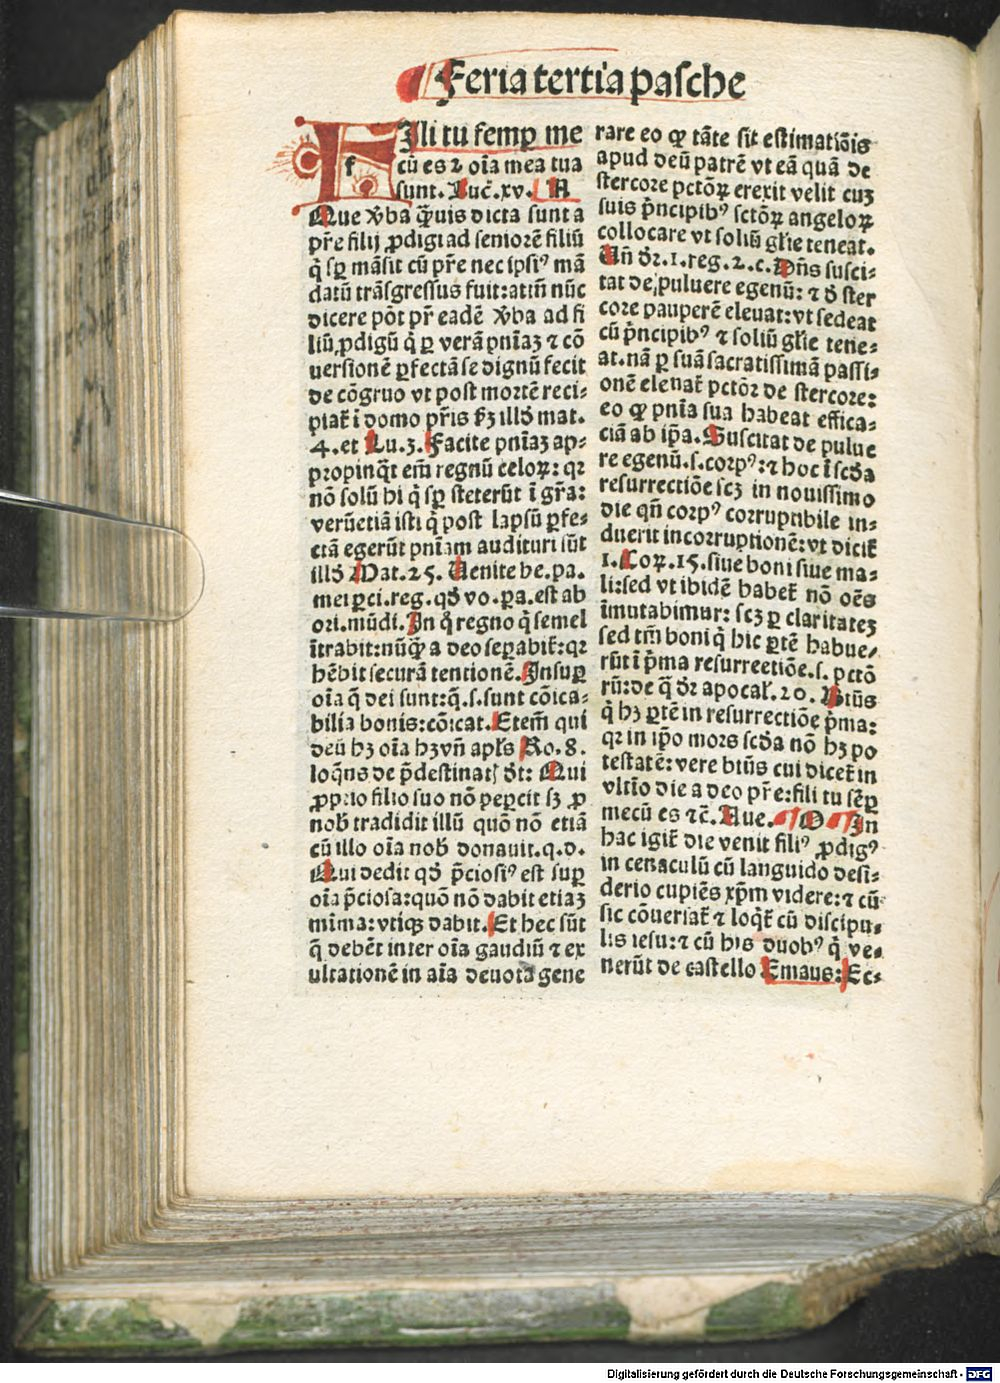 Feria tertia pasche
Fili tu semp me
cū es ⁊ oīa mea tua
sunt. Luc̄. xv. R
Que v̄ba q̄uis dicta sunt a
pr̄e filij ꝓdigi ad seniorē filiū
q̄ sp̄ māsit cū pr̄e nec ipsiꝰ mā
datū trāsgressus fuit: attn̄ nūc
dicere pōt pr̄ eadē v̄ba ad fi
liū ꝓdigū q̄ ꝑ verā pniāꝫ ⁊ cō
uersionē ꝑfectā se dignū fecit
de cōgruo vt post mortē reci-
piat̄ ī domo pr̄is hꝫ illd̄ mat.
4. et Lu. 3. Facite pniāꝫ ap-
propinq̄t em̄ regnū celoꝝ: qꝛ
nō solū hi q̄ sp̄ steterūt ī gr̄a:
verūetiā isti q̄ post lapsū ꝑfe-
ctā egerūt pniam audituri sūt
illd̄ Mat. 25. Venite be. pa.
mei ꝑci. reg. qd̄ vo. pa. est ab
ori. mūdi. In q̄ regno q̄ semel
ītrabit: nūq̄ a deo seꝑabit̄: qꝛ
hēbit securā tentionē. Insuꝑ
oīa q̄ dei sunt: q̄. s. sunt cōica-
bilia bonis: cōicat. Etem̄ qui
deū hꝫ oīa hꝫ vn̄ apl̄s Ro. 8.
loq̄ns de p̄destinat[ d̄t: Qui
ꝓprio filio suo nō peꝑcit sꝫ ꝓ
nob̄ tradidit illū quō nō etiā
cū illo oīa nob̄ donauit. q. d.
Qui dedit qd̄ p̄ciosiꝰ est suꝑ
oīa p̄ciosa: quō nō dabit etiaꝫ
mīma: vtiqꝫ dabit. Et hec sūt
q̄ debēt inter oīa gaudiū ⁊ ex
ultationē in aīa deuota gene
rare eo qꝙ tāte sit estimatiōis
apud deū patrē vt eā quā de
stercore pctōꝝ erexit velit cuꝫ
suis p̄ncipibꝰ sctōꝝ angeloꝝ
collocare vt soliū gl̄ie teneat.
Vn̄ dr̄. 1. reg. 2. c. Dn̄s susci-
tat de puluere egenū: ⁊ d̄ ster
core pauperē eleuat: vt sedeat
cū p̄ncipibꝰ ⁊ soliū gl̄ie tene-
at. nā ꝑ suā sacratissimā passi-
onē eleuat̄ pctōꝛ de stercore:
eo qꝙ pnīa sua habeat effica-
ciā ab ip̄a. Suscitat de pulue
re egenū. s. corpꝰ: ⁊ hoc ī scd̄a
resurrectiōe scꝫ in nouissimo
die qn̄ corpꝰ corruptibile in-
duerit incorruptionē: vt dicit̄
1. Coꝝ. 15. siue boni siue ma-
li: sed vt ibidē habet̄ nō oēs
īmutabimur: scꝫ ꝑ claritateꝫ
sed tm̄ boni q̄ hic ꝑtē habue-
rūt ī p̄ma resurrectiōe. s. pctō
rū: de q̄ dr̄ apocal̄. 20. Btūs
q̄ hꝫ ꝑtē in resurrectiōe p̄ma:
qꝛ in ip̄o mors scd̄a nō hꝫ po
testatē: vere btūs cui dicet̄ in
vltīo die a deo pr̄e: fili tu sēꝑ
mecū es ⁊c̄. Aue. O In
hac igit̄ die venit filiꝰ ꝓdigꝰ
in cenaculū cū languido desi-
derio cupiēs xp̄m videre: ⁊ cū
sic cōueriat̄ ⁊ loq̄t̄ cū discipu-
lis iesu: ⁊ cū his duobꝰ q̄ ve-
nerūt de castello Emaus: Ec-
Digitalisierung gefördert durch die Deutsche Forschungsgemeinschaft - DFG